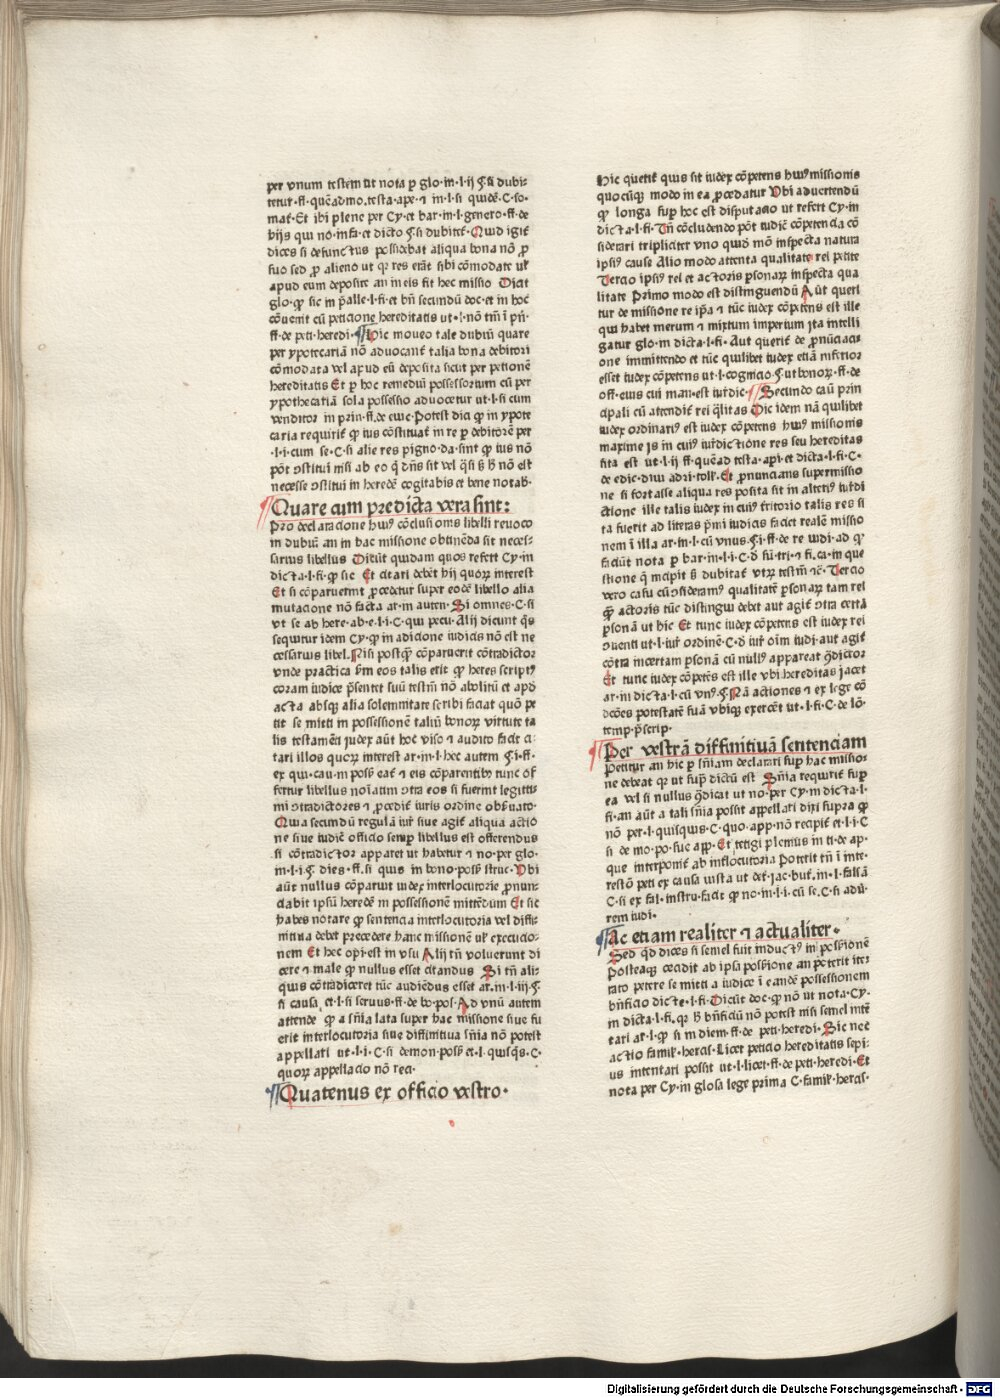 per vnum testem ut nota p̄ glo·in·l·ij §·si dubi-
tetur·ff·quēadmo·testa·ape·⁊ in·l·si quidē·C·so-
mat̄·Et ibi plene per Cy·et bar·in·l·genero·ff·de
hijs qui no·infa·et dicto §·si dubitet̄·Quid igit̄
dices si defunctus possidebat aliqua bona nō p̄
suo sed p̄ alieno ut qr̄ res erāt sibi cōmodate ul̄
apud eum deposite an in eis fit hec missio Dicit
glo·ꝙ sic in p̄alle·l·fi·et bn̄ secundū doc·et in hoc
cōuenit cū peticione hereditatis ut·l·nō tm̄ i pn̄·
ff·de peti·heredi·¶Hic moueo tale dubiū quare
per ypotecariā nō aduocant̄ talia bona debitori
cōmodata vel apud eū deposita sicut per petionē
hereditatis Et p̄ hoc remediū possessorium cū per
ypothecatiā sola possessio aduocetur ut·l·si cum
venditor in prin·ff·de euic·Potest dici ꝙ in ypote
caria requirit̄ ꝙ ius cōstituat̄ in re p̄ debitorē per
·l·i·cum se·C·si alie res pigno·da·sint ꝙ ius nō
pōt ↄstitui nisi ab eo q̄ dn̄s sit vel q̄si s̄ h̄ nō est
necesse ↄstitui in heredē cogitabis et bene notab·
¶Quare cum predicta vera sint:
Pro declaracione huiꝰ cōclusionis libelli reuoco
in dubiū an in hac missione obtinēda sit neces-
sarius libellus Dicūt quidam quos refert Cy·in
dic·ta·l·fi·ꝙ sic Et citari debēt hij quorꝝ interest
Et si cōparuerint p̄cedetur super eodē libello alia
mutacione nō facta ar·in auten·Si omnes·C·si
vt se ab here·ab·e·l·i·C·qui pecu·Alij dicunt q̄s
sequitur idem Cy·ꝙ in adicione iudicis nō est ne
cessarius libel·Nisi postq̄ cōparuerit cōtradictor
vnde practica s̄m eos talis erit ꝙ heres scriptꝰ
coram iudice p̄sentet suū testm̄ nō abolitū et apd̄
acta absqꝫ alia solemnitate scribi faciat quō pe
tit se mitti in possessionē taliū bonorꝝ virtute ta
lis testamēti iudex aūt hoc viso ⁊ audito facit ci-
tari illos quorꝝ interest ar·in·l·hec autem §·i·ff·
ex qui·cau·in poss̄ eat̄ ⁊ eis cōparentibꝫ tunc of
fertur libellus noīatim ↄtra eos si fuerint legitti-
mi ↄtradictores ⁊ p̄cedit̄ iuris ordine obẜuato·
Quia secundū regulā iur̄ siue agit̄ aliqua actiō
ne siue iudic̄ officio semp̄ libellus est offerendus
si cōtradictor apparet ut habetur ⁊ no·per glo·
in·l·i·§ dies·ff·si quis in bono·poss̄ struc·Vbi
aūt nullus cōparuit iudex interlocutorie p̄nun-
ciabit ipsū heredē in possessionē mittēdum Et sic
habes notare ꝙ sentencia interlocutoria vel diffi-
nitiua debet precedere hanc missionē ul̄ execucio-
nem Et hec opi·est in vsu Alij tn̄ voluerunt di
cere ⁊ male ꝙ nullus esset citandus Si tn̄ ali-
quis cōtradiceret tūc audiēdus esset ar·in·l·iij·§
si causa·et·l·si seruus·ff·de bo·pos·Ad vnū autem
attende ꝙ a sn̄ia lata super hac missione siue fu
erit interlocutoria siue diffinitiua sn̄ia nō potest
appellari ut·l·i·C·si demon·poss̄ et·l·quisq̄s·C·
quorꝝ appellacio nō reci·
¶Quatenus ex officio vestro·
Hic querit̄ quis sit iudex cōpetens huiꝰ missionis
quocūqꝫ modo in ea p̄cedatur Vbi aduertendū
ꝙ longa sup̄ hoc est disputacio ut refert Cy·in
dic·ta·l·fi·Tn̄ cōcludendo pōt iudic̄ cōpetencia cō
siderari tripliciter vno quid mō inspecta natura
ipsiꝰ cause Alio modo attenta qualitate rei petite
Tercio ipsiꝰ rei et actoris ꝑsonarꝝ inspecta qua
litate Primo modo est distinguendū Aūt queri
tur de missione re ip̄a ⁊ tūc iudex cōpetens est ille
qui habet merum ⁊ mixtum imperium ita intelli
gatur glo·in dicta·l·fi·Aut querit̄ de p̄nūciaci-
one immittendo et tūc quilibet iudex etiā inferior
esset iudex cōpetens ut·l·cognicio·§·ut bonorꝝ·ff·de
off·eius cui man·est iur̄dic·¶Secundo caū prin
cipali cū attendit̄ rei q̄litas Dic idem nā quilibet
iudex ordinariꝰ est iudex cōpetens huiꝰ missionis
maxime is in cuiꝰ iur̄dictione res seu hereditas
sita est ut·l·ij ff·quēad testa·api·et dicta·l·fi·C·
de edic·diui adri·toll̄·Et p̄nuncians supermissio
ne si fortasse aliqua res posita sit in alteriꝰ iur̄di
ctione ille talis iudex in cuiꝰ t̄ritorio talis res si
ta fuerit ad literas p̄mi iudicis faciet realē missio
nem i illa ar·in·l·cū vnus·§·i·ff·de re iudi·ad qꝫ
faciūt nota p̄ bar·in·l·i·C·d fū·tri·⁊ fi·ca·in que
stione q̄ incipit s̄ dubitat̄ vtrꝝ testm̄ ⁊c̄·Tercio
vero casu cū ↄsideramꝰ qualitatē ꝑsonarꝝ tam rei
q̄ꝫ actoris tūc distingui debet aut agit̄ ↄtra certā
ꝑsonā ut hic Et tunc iudex cōpetens est iudex rei
ↄuenti ut·l·iur̄ ordinē·C·d iur̄ oīm iudi·aut agit̄
cōtra incertam ꝑsonā cū nullꝰ appareat ↄ̄dictor
Et tunc iudex cōpetēs est ille vbi hereditas iacet
ar·in dic·ta·l·cū vnꝰ·§·Nā actiones ⁊ ex lege cō
dicōes potestatē suā vbiqꝫ exercēt ut·l·fi·C·de lō·
temp·p̄scrip·
¶Per vestrā diffinitiuā sentenciam
Petitur an hic p̄ sn̄iam declarari sup̄ hac missio-
ne debeat qr̄ ut sup̄ dictū est Sn̄ia requirit̄ sup̄
ea vel si nullus ↄ̄dicat ut no·per Cy·in dic·ta·l·
fi·an aūt a tali sn̄ia possit appellari dixi supra ꝙ
nō per·l·quisquis·C·quo·app·nō recipit̄ et·l·i·C
si de mo·po·siue app·Et tetigi plenius in ti·de ap-
que interponit̄ ab inłocutoria Poterit tn̄ i inte-
restō peti ex causa iusta ut det̄·iac·but̄·in·l·falsā
C·si ex fal·instru·facit ꝙ no·in·l·i·cū se·C·si adu̇·
rem iudi·
¶Ac etiam realiter ⁊ actualiter·
Sed qd̄ dices si semel fuit inductꝰ in poss̄ionē
Posteaqꝫ cecidit ab ipsa poss̄ione an poterit ite-
rato petere se mitti a iudice i eandē possessionem
bn̄ficio dicte·l·fi·Dicūt doc·ꝙ nō ut nota·Cy·
in dicta·l·fi·qr̄ h̄ bn̄ficiū nō potest nisi semel intē
tari ar·l·ꝙ si in diem·ff·de peti·heredi·Sic nec
actio famił·hercis·Licet peticio hereditatis sepi-
us intentari possit ut·l·licet·ff·de peti·heredi·Et
nota per Cy·in glosa lege prima C·famił·hercis·
Digitalisierung gefördert durch die Deutsche Forschungsgemeinschaft · DFG